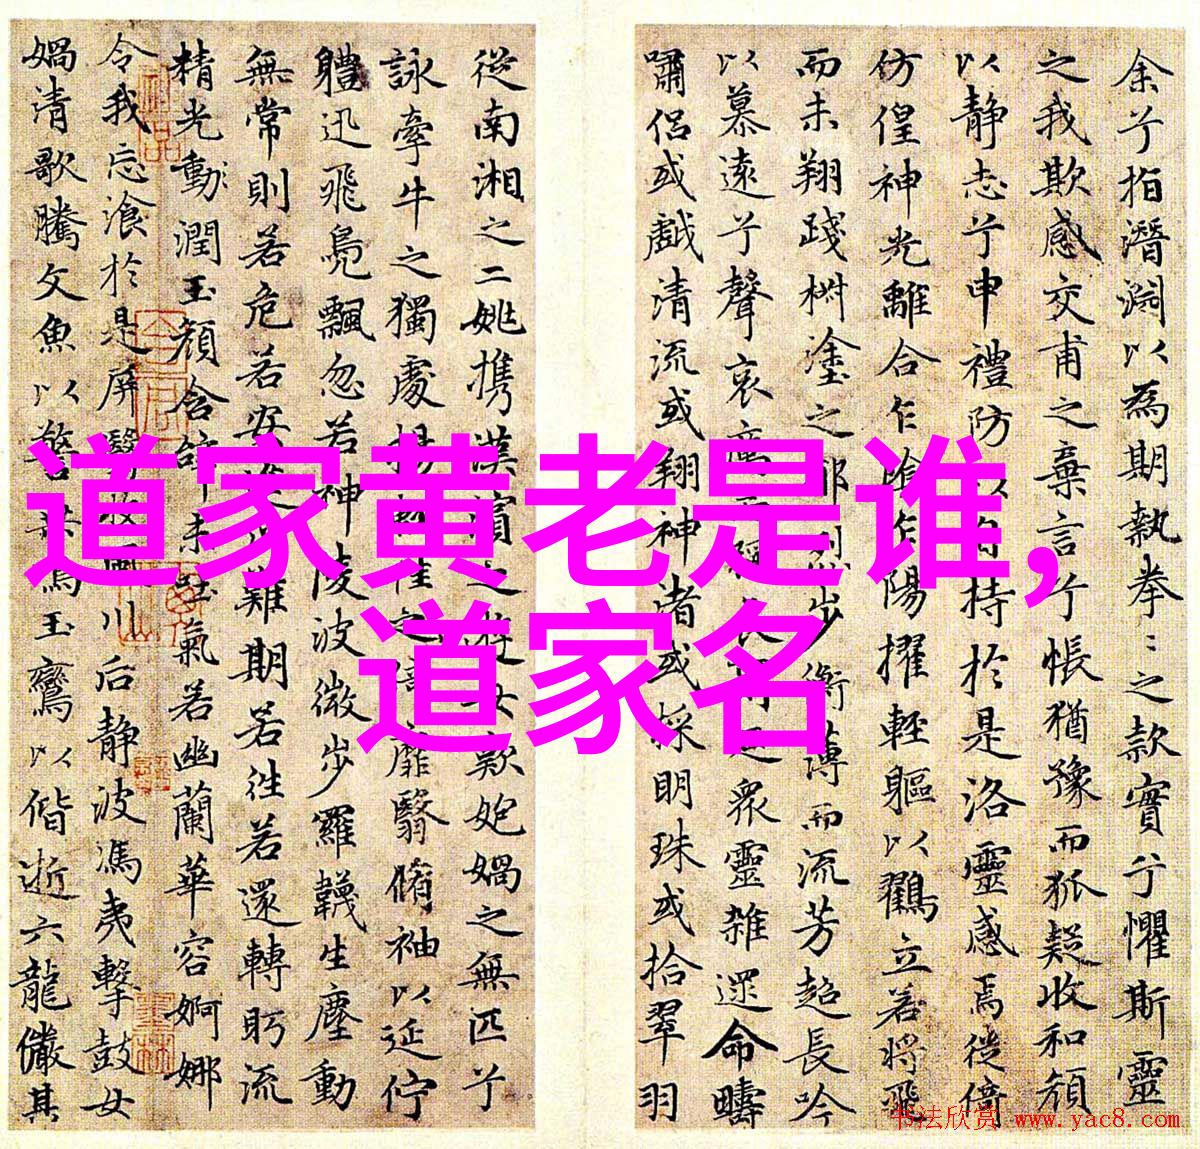 道家黄老是谁,
道家名
余兮指潛淵以為期執拳〻之款實兮懼斯靈
之我欺感交甫之棄言兮悵猶豫而狐疑收和顏
以静志兮申禮防以自持於是洛靈感焉徙倚
仿偟神光離合乍陰乍陽擢輕軀以鶴立若將飛
而未翔踐椒塗之郁烈步衡薄而流芳超長吟
以慕遠兮聲哀厲而彌長爾迺衆靈雜遝命疇
嘯侣或戲清流或翔神渚或採明珠或拾翠羽
從南湘之二姚攜漢濱之遊女歎匏媧之無匹兮
詠牽牛之獨處揚輕袿之猗靡翳脩袖以延佇
體迅飛鳧飄忽若神陵波微步羅韈生塵動
無常則若危若安進止難期若往若還轉眄流
精光動潤玉顏含辭未吐氣若幽蘭華容婀娜
令我忘湌於是屏翳收風川后静波馮夷擊鼓女
媧清歌騰文魚以警乘鳴玉鸞以偕逝六龍儼其
书法欣赏 www.yac8.com